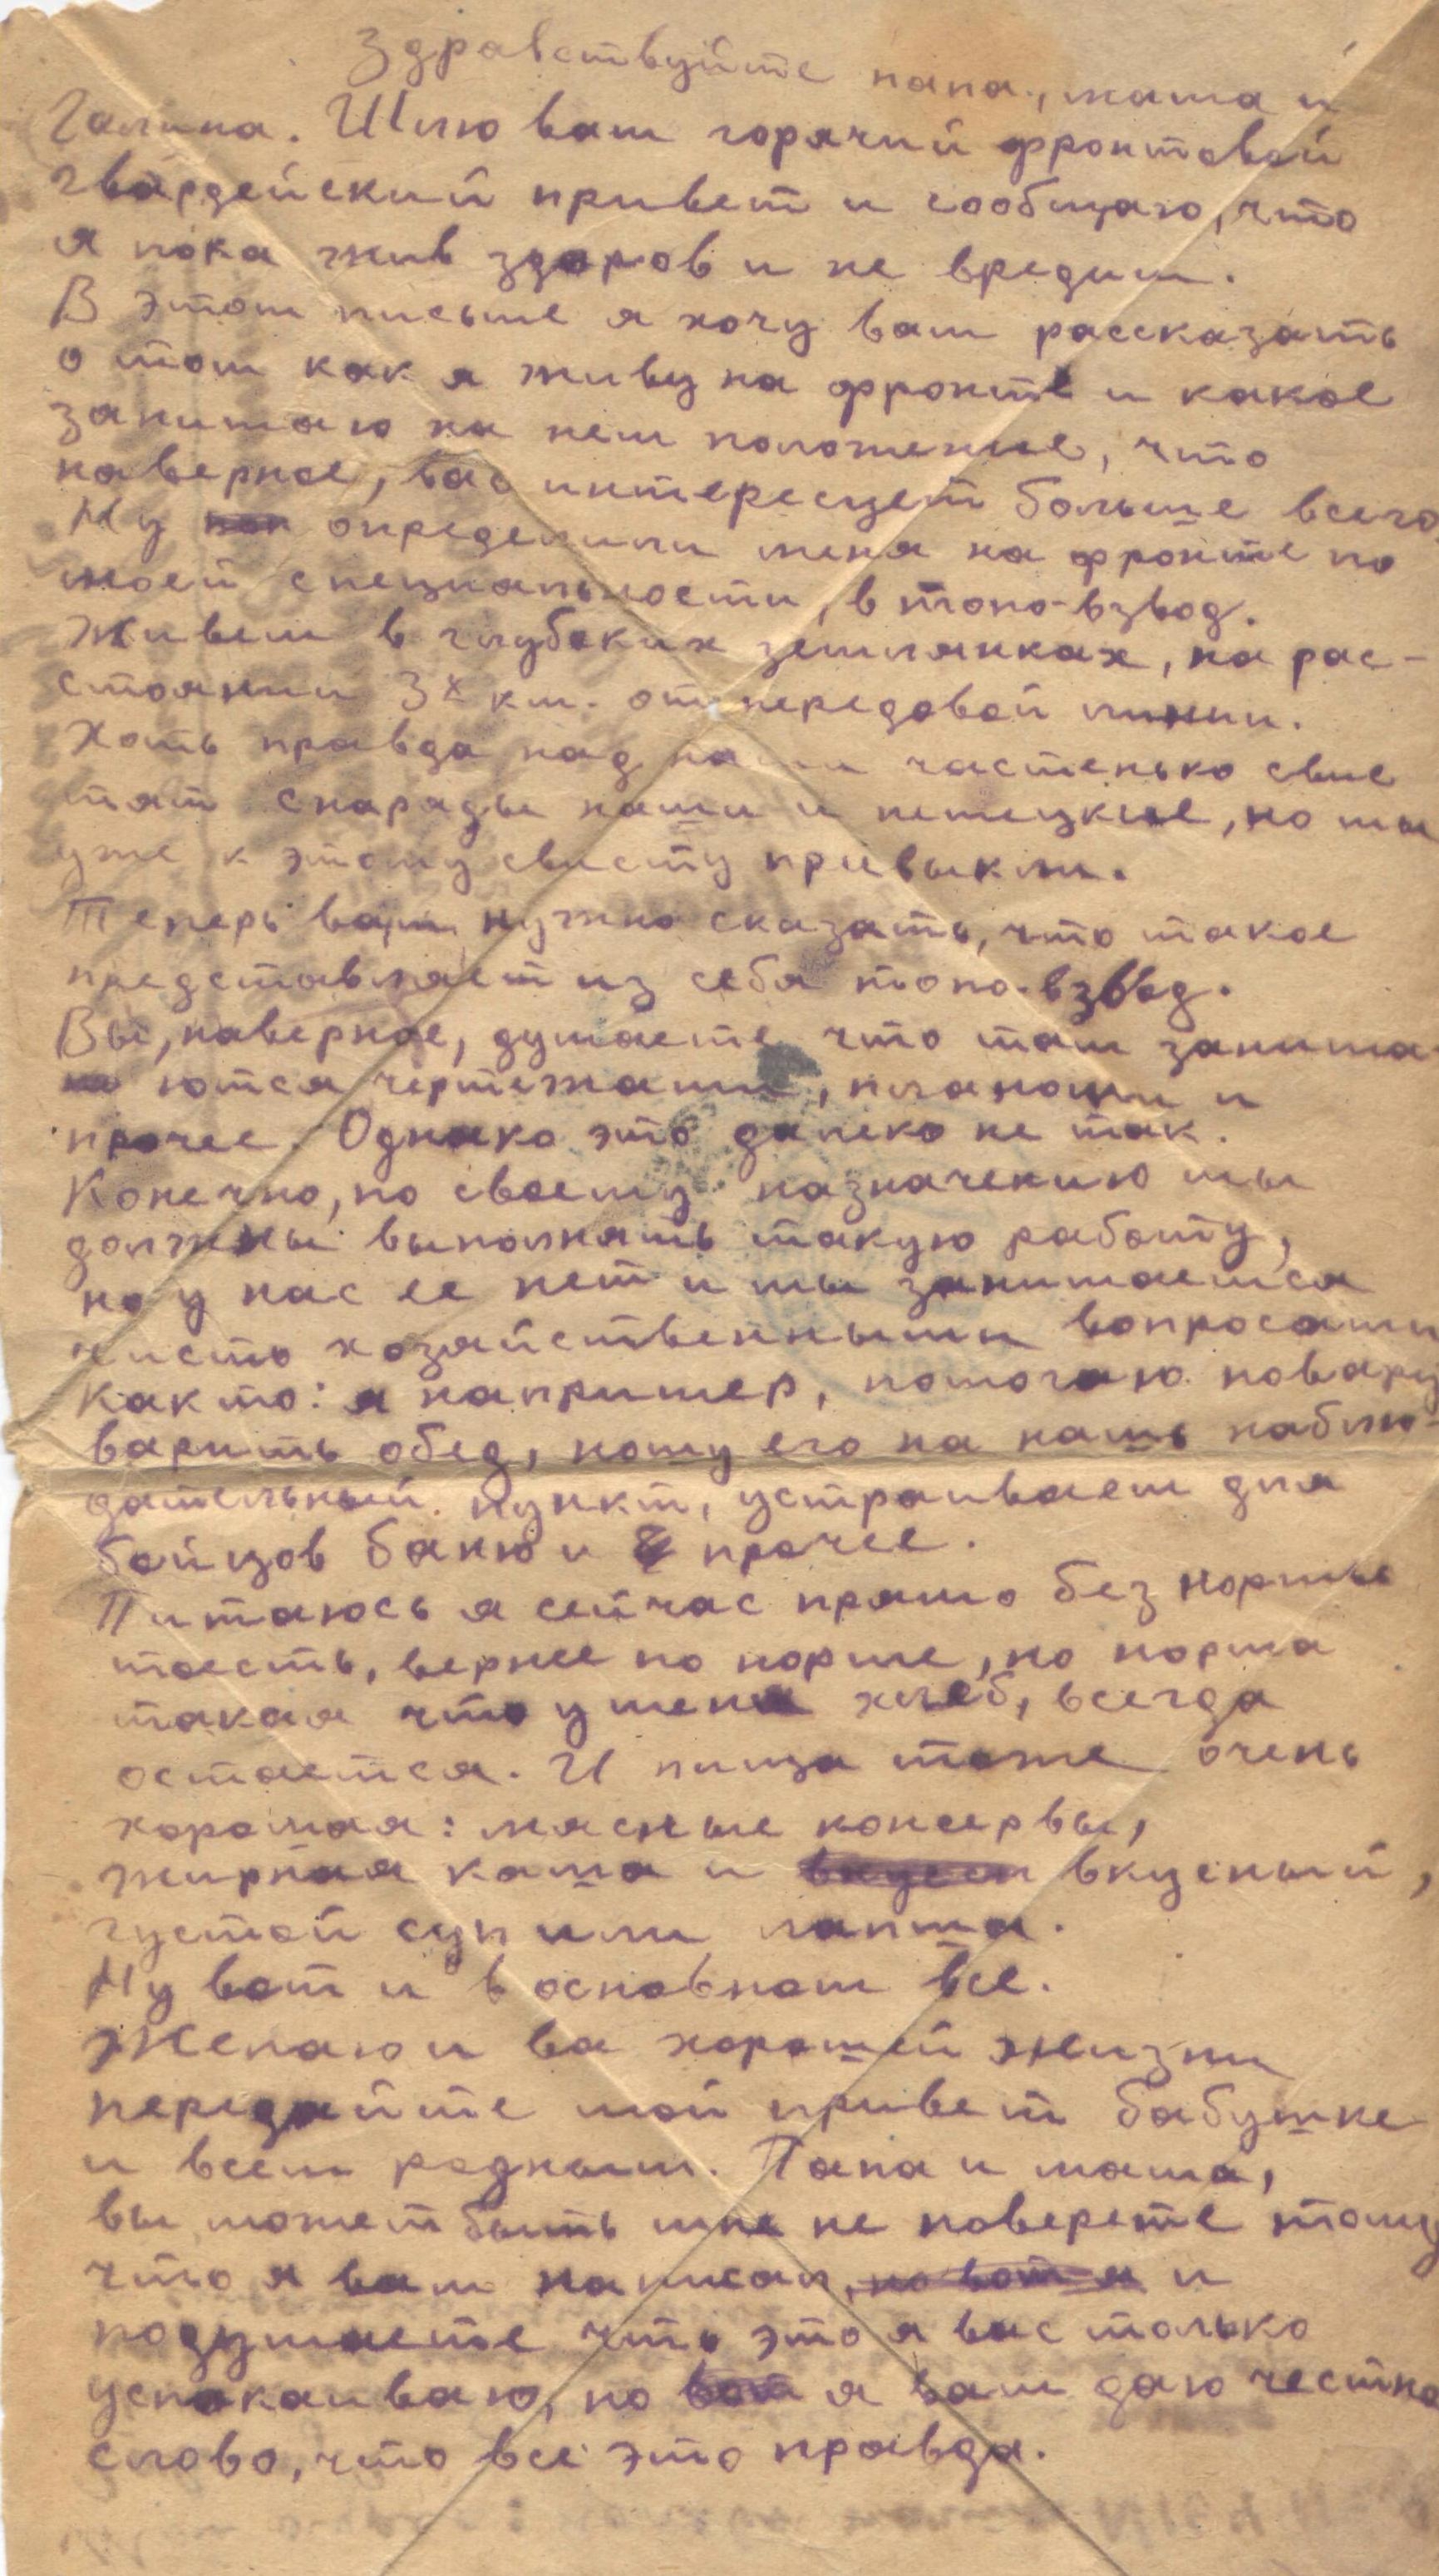 Здравствуйте папа, мама и
Галина. Шлю вам горячий фронтовой
гвардейский привет и сообщаю, что
я пока жив здоров и не вредим.
В этом письме я хочу вам рассказать
о том как я живу на фронте и какое
занимаю на нем положение, что
наверное, вас интересует больше всего.
Ну определили меня на фронте по
моей специальности, в топо-взвод.
Живем в глубоких землянках, на рас-
стоянии 3х км. от передовой линии.
Хоть правда над нами частенько свис
тят снаряды наши и немецкие, но мы
уже к этому свисту привыкли.
Теперь вам нужно сказать, что такое
представляет из себя топо-взвод.
Вы, наверное, думаете что там занима-
ются чертежами, планами и
прочее. Однако это далеко не так.
Конечно, по своему назначению мы
должны выполнять такую работу,
но у нас ее нет и мы занимаемся
чисто хозяйственными вопросами
как то: я например, помогаю повару
варить обед, ношу его на наш наблю-
дательный пункт, устраиваем для
бойцов баню и прочее.
Питаюсь я сейчас прямо без нормы
тоесть, вернее по норме, но норма
такая что у меня хлеб, всегда
остается. И пища тоже очень
хорошая: мясные консервы,
жирная каша и вкусный,
густой суп или лапша.
Ну вот и в основном все.
Желаю и ва хорошей жизни
передайте мой привет бабушке
и всем родным. Папа и мама,
вы может быть мне не поверете тому
что я вам написал, но вот я и
подумаете что это я вас только
успокаиваю, но вот я вам даю честно
слово, что все это правда.